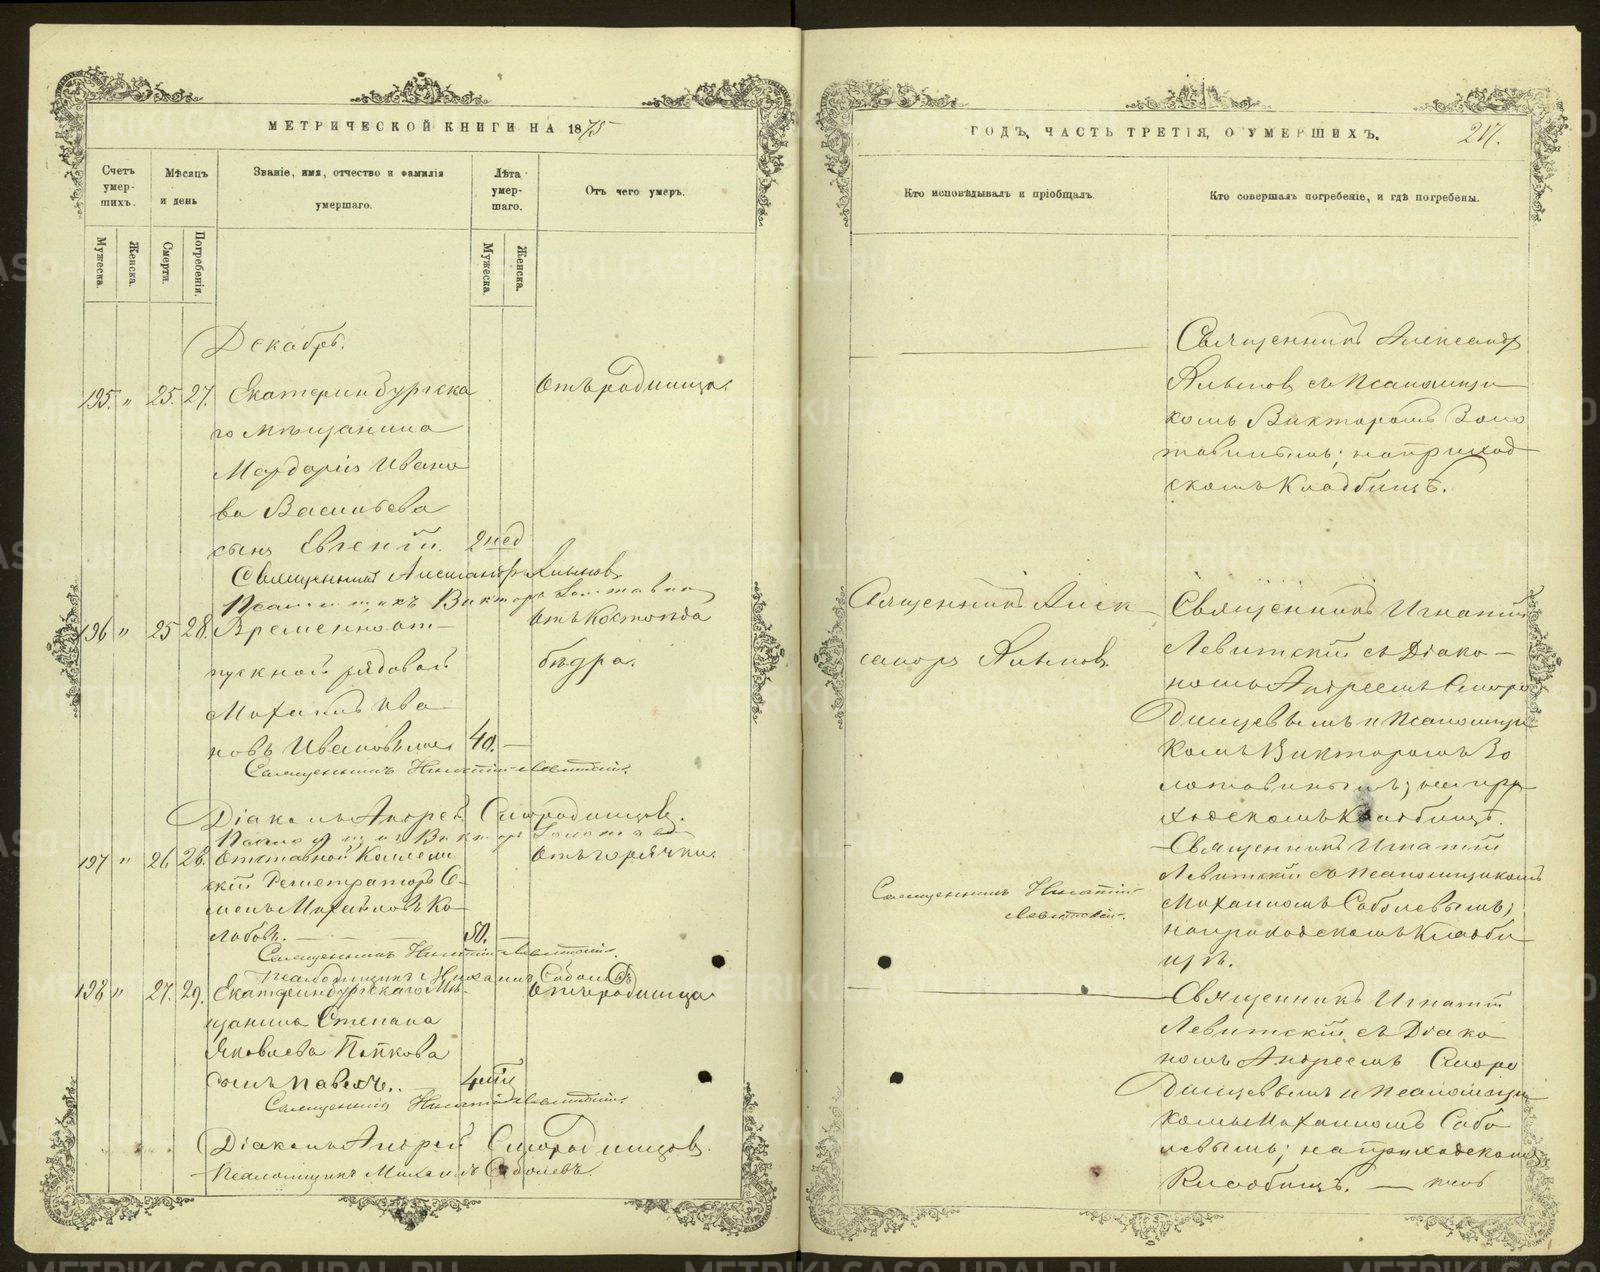 МЕТРИЧЕСКОЙ КНИГИ НА 1875
Счетъ умер-шихъ.
Мѣсяцъ и день
Званіе, имя, отчество и фамилія умершаго.
Лѣта умер-шаго.
Отъ чего умеръ.
Мужеска.
Женска.
Смерти.
Погребенія.
Мужеска.
Женска.
Декабрь.
195. " 25. 27. Екатеринбургска
го мѣщанина
Мардарія Ивано
ва Васильева
сынъ Евгеній. 2 нед
Отъ родимца.
Священникъ Александръ
Псаломщикъ Викторъ
196 " 25 28. Временно от-
пускной рядовой
Михаилъ Ива
новъ 40. —
Отъ
бедра.
Священникъ Игнатій Левитскій.
Діаконъ Андрей Смородинцовъ.
Псаломщикъ Викторъ
197 " 26 28. Отставной Коллеж
скій Регистраторъ Се-
менъ Михайловъ Ко-
лобовъ. 50. —
Отъ горячки.
Священникъ Игнатій Левитскій.
Псаломщикъ Михаилъ Соболевъ
198 " 27. 29. Екатеринбургскаго Мѣ-
щанина Степана
Яковлева Попкова
сынъ Павелъ.
Отъ родимца
Священникъ Игнатій Левитскій.
Діаконъ Андрей Смородинцовъ.
Псаломщикъ Михаилъ Соболевъ.
ГОДЪ, ЧАСТЬ ТРЕТІЯ, О УМЕРШИХЪ. 217.
Кто исповѣдывалъ и пріобщалъ.
Кто совершалъ погребеніе, и гдѣ погребены.
Священникъ Александръ
съ Псаломщи
комъ Викторомъ Золо
тавинымъ; на приход
скомъ Кладбищѣ.
Священникъ Алек
сандръ
Священникъ Игнатій
Левитскій съ Діако-
номъ Андреемъ Сморо
динцевымъ и Псаломщи
комъ Викторомъ Зо
лотавинымъ; на при
ходскомъ Кладбищѣ.
Священникъ Игнатій
Левитскій.
Священникъ Игнатій
Левитскій съ Псаломщикомъ
Михаиломъ Соболевымъ;
на приходскомъ Кладби
щѣ.
Священникъ Игнатій
Левитскій съ Діако
номъ Андреемъ Сморо
динцевымъ и Псаломщи
комъ Михаиломъ Собо
левымъ; на приходскомъ
Кладбищѣ. —
METRIKI.GASO-URAL.RU